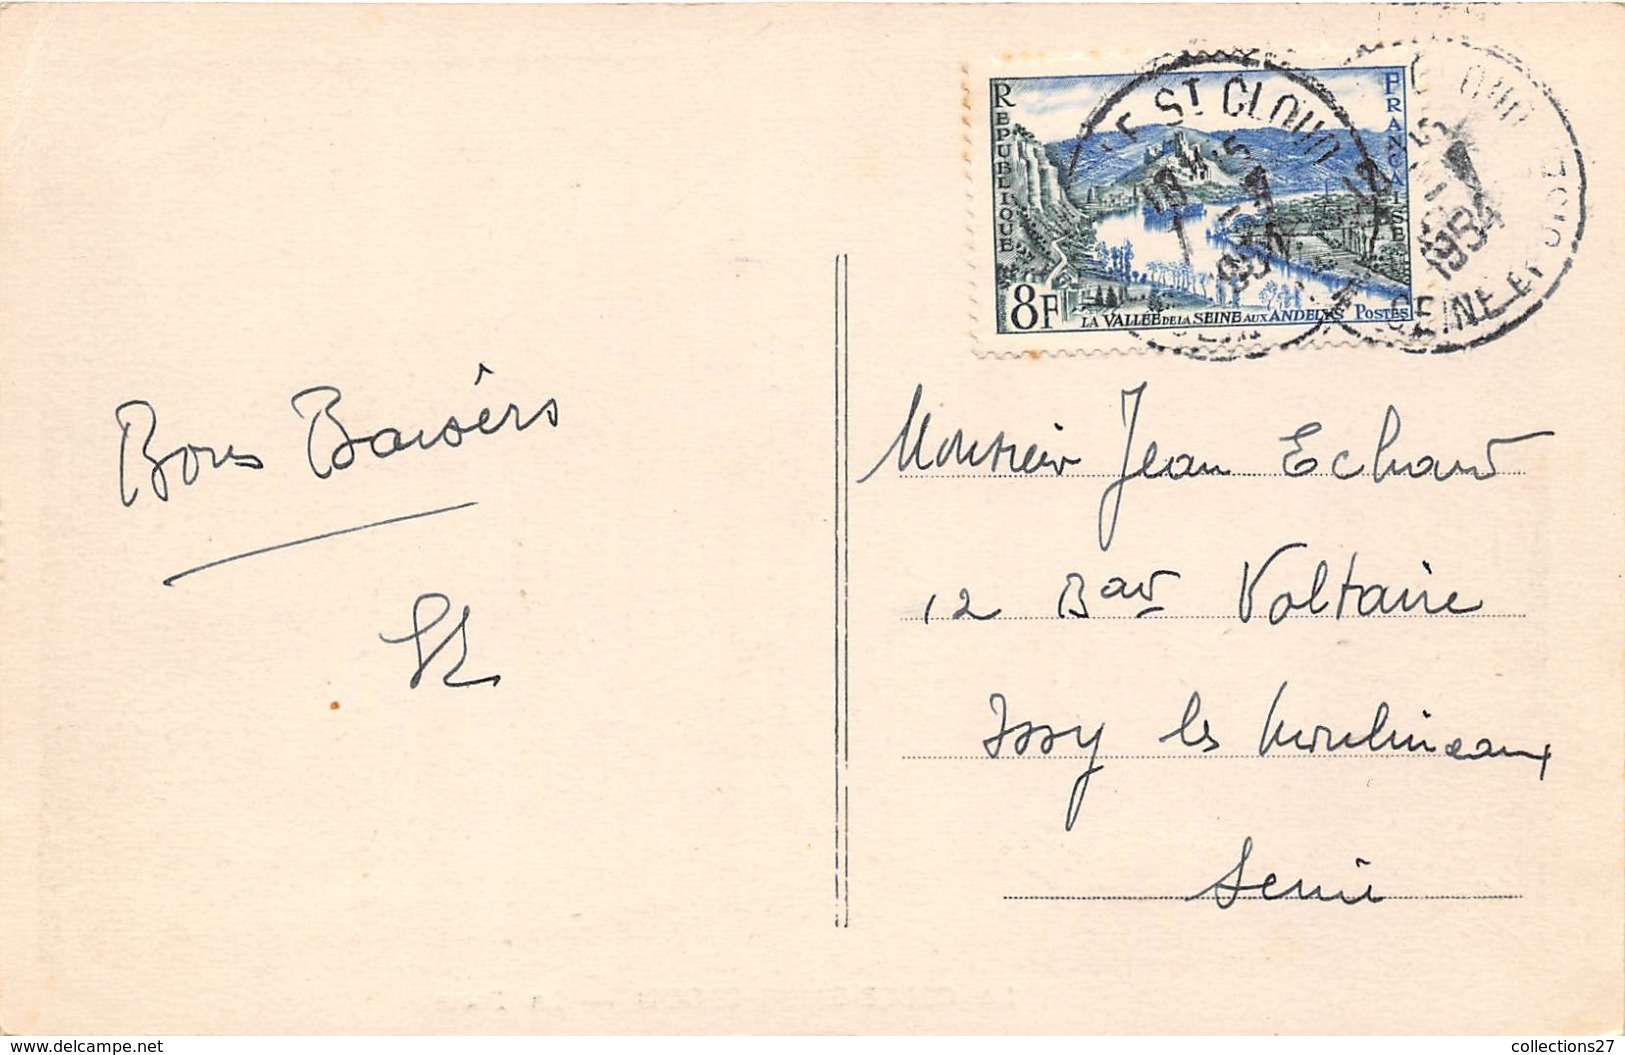 RÉPUBLIQUE
FRANÇAISE
8F
LA VALLÉE DE LA SEINE AUX ANDELYS POSTES
ST CLOUD
18 H 15
1954
SEINE ET OISE
Bons Baisers
Monsieur Jean Echard
12 Bav Voltaire
Issy les Moulineaux
Seine
www.delcampe.net
collections27